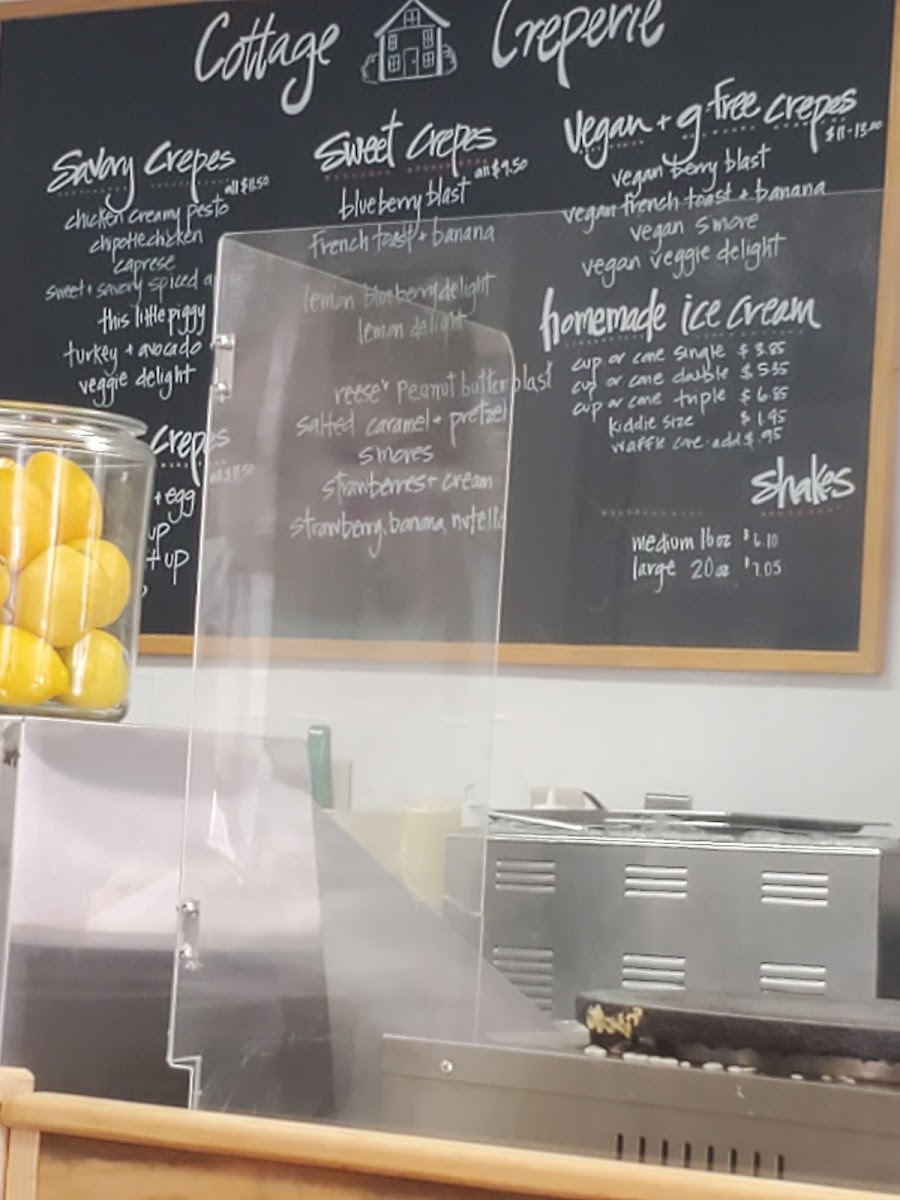 Cottage Creperie
Savory Crepes
all $11.50
chicken creamy pesto
chipotle chicken
caprese
sweet + savory spiced
this little piggy
turkey + avocado
veggie delight
crepes
+ egg
up
+ up
sweet crepes
all $9.50
blueberry blast
french toast + banana
lemon blueberry delight
lemon delight
reese's peanut butter blast
salted caramel + pretzel
s'mores
strawberries + cream
strawberry, banana, nutella
vegan + g free crepes
$11-13.00
vegan berry blast
vegan french toast + banana
vegan s'more
vegan veggie delight
homemade ice cream
cup or cone single $3.85
cup or cone double $5.35
cup or cone triple $6.85
kiddie size $1.95
waffle cone-add $.95
shakes
medium 16oz $6.10
large 20oz $7.05